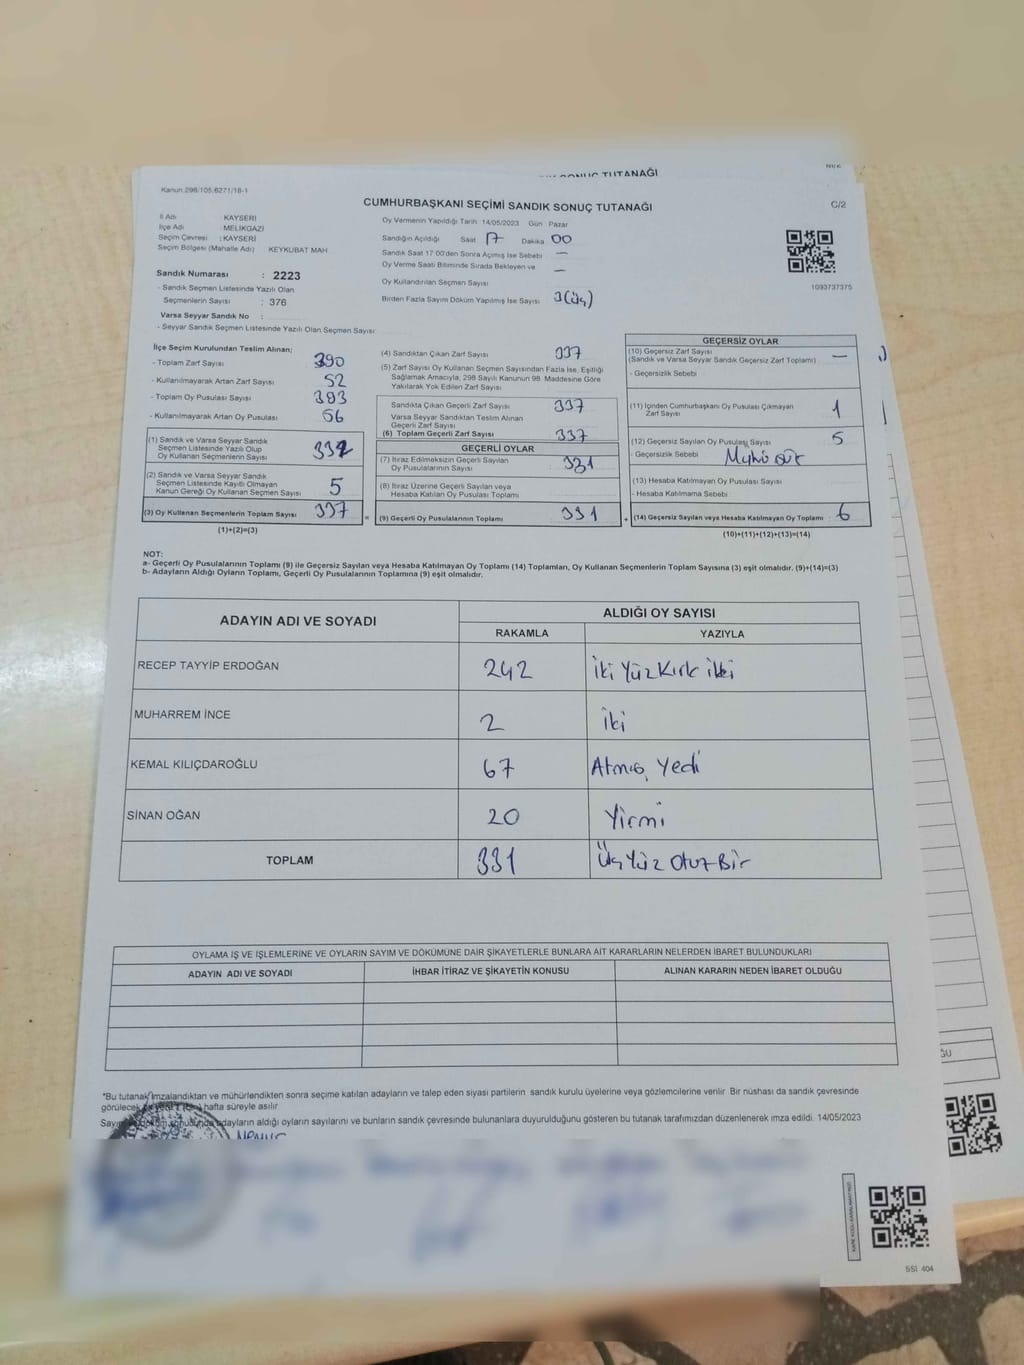 SONUÇ TUTANAĞI
Kanun.298/105,6271/18-1
CUMHURBAŞKANI SEÇİMİ SANDIK SONUÇ TUTANAĞI
C/2
İl Adı KAYSERİ
İlçe Adı : MELİKGAZİ
Seçim Çevresi : KAYSERİ
Seçim Bölgesi (Mahalle Adı) KEYKUBAT MAH
Sandık Numarası : 2223
- Sandık Seçmen Listesinde Yazılı Olan
Seçmenlerin Sayısı : 376
Varsa Seyyar Sandık No :
- Seyyar Sandık Seçmen Listesinde Yazılı Olan Seçmen Sayısı
Oy Vermenin Yapıldığı Tarih 14/05/2023 Gün Pazar
Sandığın Açıldığı Saat 17 Dakika 00
Sandık Saat 17:00'den Sonra Açılmış İse Sebebi —
Oy Verme Saati Bitiminde Sırada Bekleyen ve
Oy Kullandırılan Seçmen Sayısı —
Birden Fazla Sayım Döküm Yapılmış İse Sayısı 3 (üç)
1093737375
İlçe Seçim Kurulundan Teslim Alınan;
- Toplam Zarf Sayısı 390
- Kullanılmayarak Artan Zarf Sayısı 52
- Toplam Oy Pusulası Sayısı 393
- Kullanılmayarak Artan Oy Pusulası 56
(1) Sandık ve Varsa Seyyar Sandık
Seçmen Listesinde Yazılı Olup
Oy Kullanan Seçmenlerin Sayısı 332
(2) Sandık ve Varsa Seyyar Sandık
Seçmen Listesinde Kayıtlı Olmayan
Kanun Gereği Oy Kullanan Seçmen Sayısı 5
(3) Oy Kullanan Seçmenlerin Toplam Sayısı 337
(1)+(2)=(3)
(4) Sandıktan Çıkan Zarf Sayısı 337
(5) Zarf Sayısı Oy Kullanan Seçmen Sayısından Fazla İse, Eşitliği
Sağlamak Amacıyla, 298 Sayılı Kanunun 98. Maddesine Göre
Yakılarak Yok Edilen Zarf Sayısı
Sandıkta Çıkan Geçerli Zarf Sayısı 337
Varsa Seyyar Sandıktan Teslim Alınan
Geçerli Zarf Sayısı
(6) Toplam Geçerli Zarf Sayısı 337
GEÇERLİ OYLAR
(7) İtiraz Edilmeksizin Geçerli Sayılan
Oy Pusulalarının Sayısı 331
(8) İtiraz Üzerine Geçerli Sayılan veya
Hesaba Katılan Oy Pusulası Toplamı
= (9) Geçerli Oy Pusulalarının Toplamı 331
GEÇERSİZ OYLAR
(10) Geçersiz Zarf Sayısı
(Sandık ve Varsa Seyyar Sandık Geçersiz Zarf Toplamı) —
- Geçersizlik Sebebi
(11) İçinden Cumhurbaşkanı Oy Pusulası Çıkmayan
Zarf Sayısı 1
(12) Geçersiz Sayılan Oy Pusulası Sayısı 5
- Geçersizlik Sebebi
(13) Hesaba Katılmayan Oy Pusulası Sayısı
- Hesaba Katılmama Sebebi
+ (14) Geçersiz Sayılan veya Hesaba Katılmayan Oy Toplamı 6
(10)+(11)+(12)+(13)=(14)
NOT:
a- Geçerli Oy Pusulalarının Toplamı (9) ile Geçersiz Sayılan veya Hesaba Katılmayan Oy Toplamı (14) Toplamları, Oy Kullanan Seçmenlerin Toplam Sayısına (3) eşit olmalıdır. (9)+(14)=(3)
b- Adayların Aldığı Oyların Toplamı, Geçerli Oy Pusulalarının Toplamına (9) eşit olmalıdır.
ADAYIN ADI VE SOYADI
ALDIĞI OY SAYISI
RAKAMLA YAZIYLA
RECEP TAYYİP ERDOĞAN 242 iki Yüz Kırk iki
MUHARREM İNCE 2 iki
KEMAL KILIÇDAROĞLU 67 Atmış Yedi
SİNAN OĞAN 20 Yirmi
TOPLAM 331 Üç Yüz Otuz Bir
OYLAMA İŞ VE İŞLEMLERİNE VE OYLARIN SAYIM VE DÖKÜMÜNE DAİR ŞİKAYETLERLE BUNLARA AİT KARARLARIN NELERDEN İBARET BULUNDUKLARI
ADAYIN ADI VE SOYADI İHBAR İTİRAZ VE ŞİKAYETİN KONUSU ALINAN KARARIN NEDEN İBARET OLDUĞU
*Bu tutanak imzalandıktan ve mühürlendikten sonra seçime katılan adayların ve talep eden siyasi partilerin sandık kurulu üyelerine veya gözlemcilerine verilir. Bir nüshası da sandık çevresinde
görülecek hafta süreyle asılır
adayların aldığı oyların sayılarını ve bunların sandık çevresinde bulunanlara duyurulduğunu gösteren bu tutanak tarafımızdan düzenlenerek imza edildi. 14/05/2023
SSİ 404
ĞU